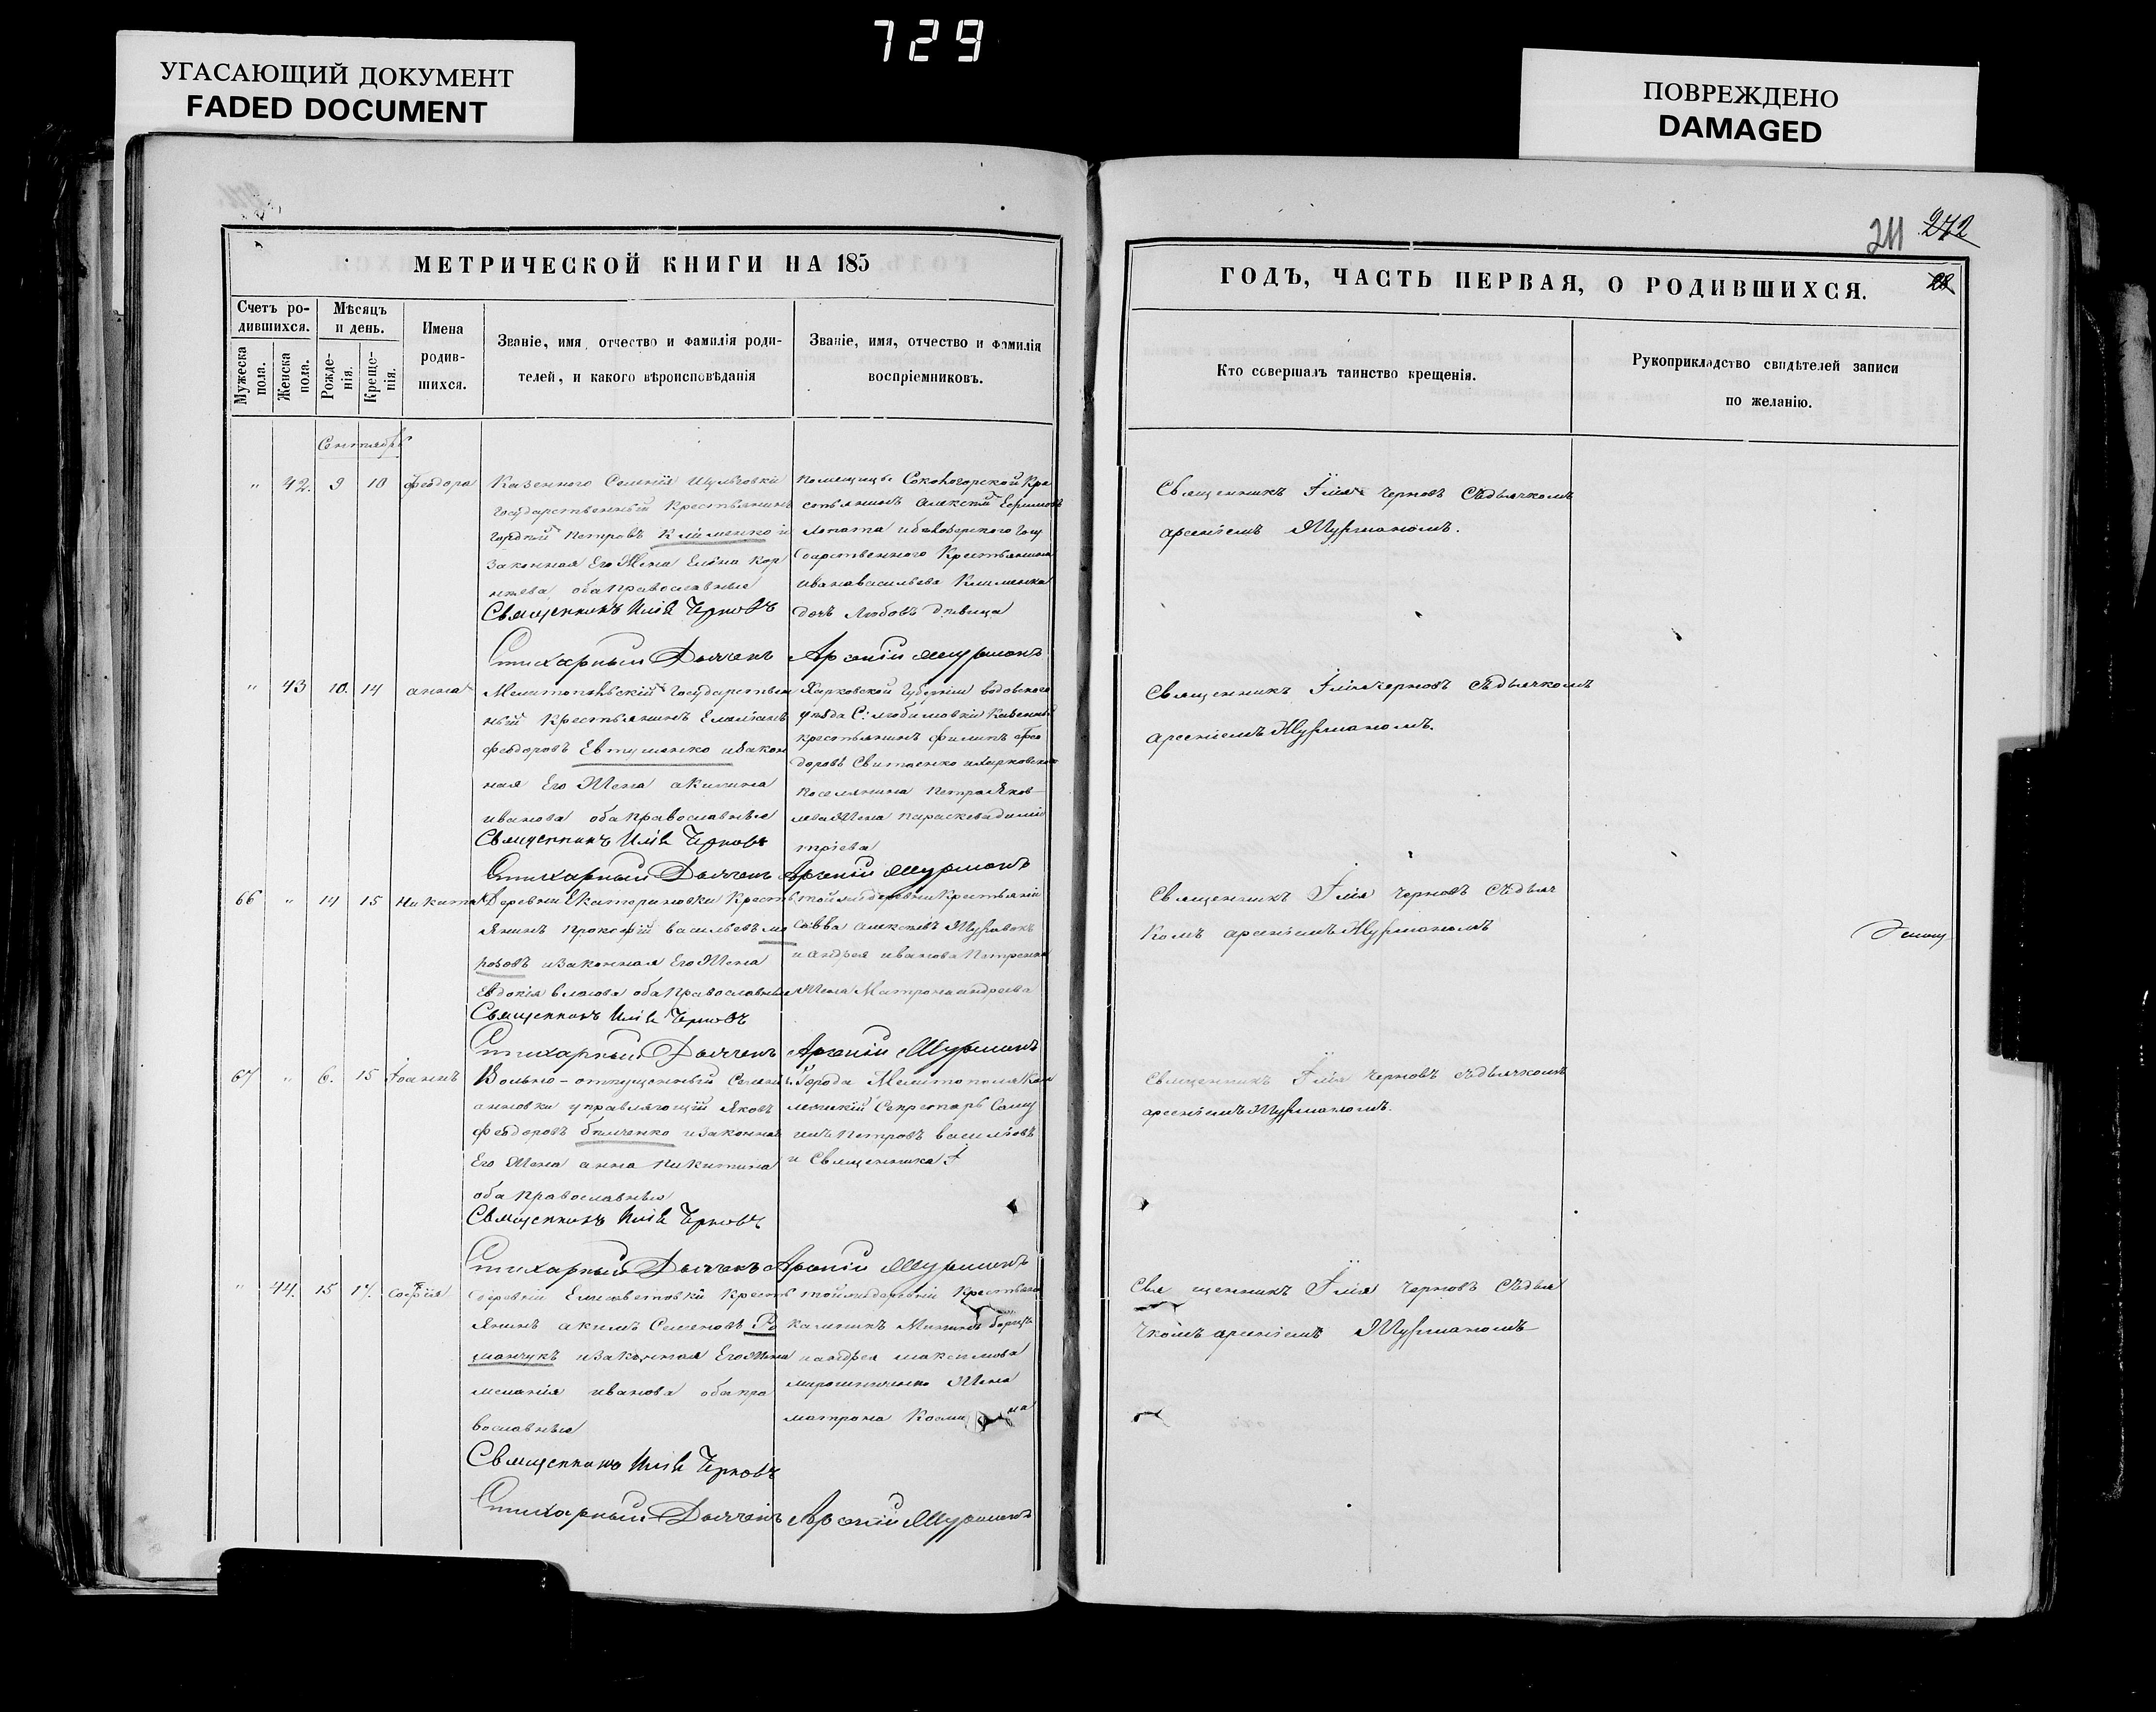 729
УГАСАЮЩИЙ ДОКУМЕНТ
FADED DOCUMENT
ПОВРЕЖДЕНО
DAMAGED
МЕТРИЧЕСКОЙ КНИГИ НА 185
Счетъ ро-
дившихся.
Мѣсяцъ
и день.
Имена
родив-
шихся.
Званіе, имя, отчество и фамилія роди-
телей, и какого вѣроисповѣданія
Званіе, имя, отчество и фамилія
воспріемниковъ.
Мужеска
пола.
Женска
пола.
Рожде-
нія.
Креще-
нія.
Сентябрь
" 42. 9 10 Феодора
Казеннаго Селенія
Государственный Крестьянинъ
Гордѣй Петровъ Клименко и
Законная Его Жена Елена Кор
нѣева, оба православные
Священникъ Илія Черновъ
Стихарный Дьячекъ Арсеній Мурманъ
Крестьянинъ Алексѣй Ефимовъ
Лопата
сударственного Крестьянина
Ивана Васильева Клименка
дочь Любовь дѣвица
" 43 10. 14 анна
Мелитопольскій Государствен
ный Крестьянинъ Емеліанъ
Феодоровъ Евтушенко изакон
ная Его Жена акилина
иванова оба православные
Священникъ Илія Черновъ
Стихарный Дьячекъ Арсеній Мурманъ
Харковской Губерніи
уѣзда С: любимовки Казенный
крестьянинъ Филипъ Фео
доровъ
Поселянина Петра Яков-
лева Жена Параскева дими
тріева
66 " 14 15 Никита
Деревни Екатериновки Кресть
янинъ Прокофій васильевъ Мо
розовъ изаконная Его Жена
Евдокія власова оба Православные
Священникъ Илія Черновъ
Стихарный Дьячекъ Арсеній Мурманъ
той же деревни Крестьянинъ
Савва алексѣевъ
и андрея иванова Петренка
Жена Матрона андреева
67 " 6. 15 Іоаннъ
Вольно-отпущенный Селенія
анновки управляющій Яковъ
Феодоровъ Бѣлченко изаконная
Его Жена анна Никитина
оба православные
Священникъ Илія Черновъ
Стихарный Дьячекъ Арсеній Мурманъ
Города Мелитополя Кол
лежскій Секретарь Сам
илъ Петровъ василіовъ
и Священника І
" 44. 15 17. Софія
деревни Елисаветовки Кресть
янинъ акимъ Семеновъ Ро
манчукъ изаконная Его Жена
меланія иванова оба пра
вославные
Священникъ Илія Черновъ
Стихарный Дьячекъ Арсеній Мурманъ
той же деревни Крестьянинъ
и андрея максимова
мирошниченка Жена
матрона Косми на
211 272
ГОДЪ, ЧАСТЬ ПЕРВАЯ, О РОДИВШИХСЯ.
Кто совершалъ таинство крещенія.
Рукоприкладство свидѣтелей записи
по желанію.
Священникъ Илія Черновъ Съдьячкомъ
арсеніемъ Мурманомъ.
Священникъ Илія Черновъ Съдьячкомъ
арсеніемъ Мурманомъ.
Священникъ Илія Черновъ Съдьяч
комъ арсеніемъ Мурманомъ
Священникъ Илія Черновъ съдьячкомъ
арсеніемъ Мурманомъ.
Свя щенникъ Илія Черновъ Съдья
чкомъ арсеніемъ Мурманомъ